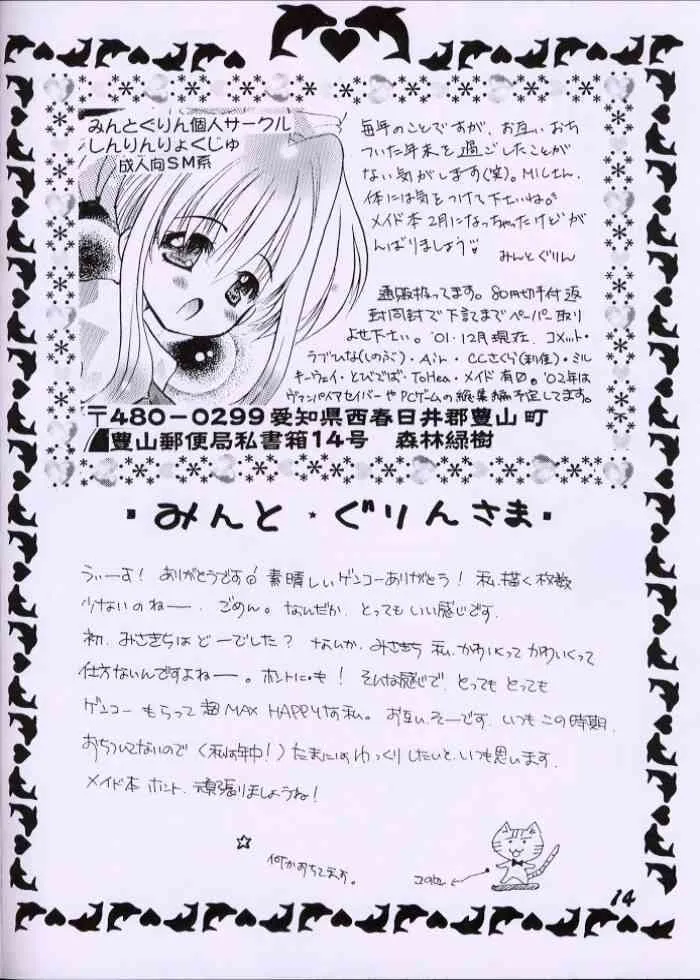 みんとぐりん個人サークル
しんりんりょくじゅ
成人向SM系
毎年のことですが、お互いおち
ついた年末を過ごしたことが
ない気がします(笑)。MICさん、
体には気をつけて下さいね。
メイド本2月になっちゃったけどが
んばりましょう
みんとぐりん
通販扱ってます。80円切手付返
封同封で下記までペーパー取り
よせ下さい。'01.12月現在、コメット・
ラブひな(しのぶ)・Air・CCさくら(知佳)・ミル
キーウェイ・とびでば・ToHea・メイド 有口。'02年は
ヴァンパイアセイバーやPCゲームの総集編予定してます。
〒480-0299愛知県西春日井郡豊山町
豊山郵便局私書箱14号 森林緑樹
みんと☆ぐりんさま
うぃーす! ありがとうです 素晴しいゲンコーありがとう! 私、描く枚数
少ないのねー、ごめん。なんだか、とってもいい感じです。
初、みさきちはどーでした? なんか、みさきち 私、かわいくって かわいくって
仕方ないんですよねー。ホントにも! そんな感じで、とっても とっても
ゲンコー もらって 超MAX HAPPYな私。お互い、そーです、いつもこの時期、
おちついてないので(私は年中!)たまにはゆっくりしたいと、いつも思います。
メイド本 ホント、頑張りましょうね!
☆
何かおちてます。
14